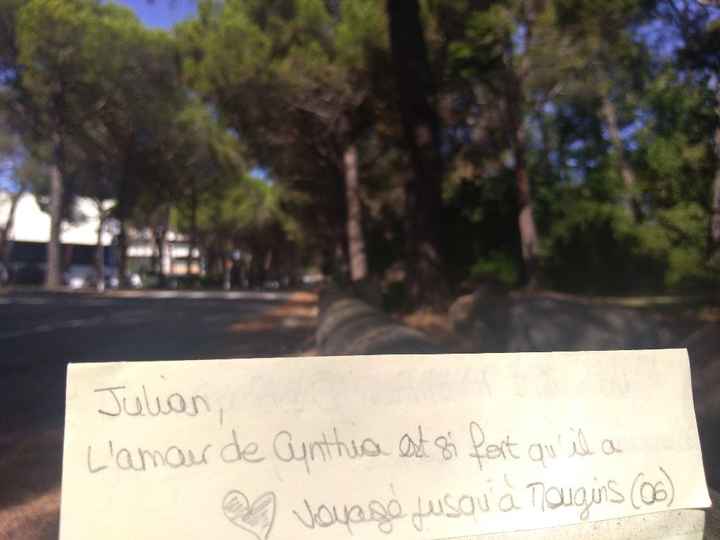 Julian,
L'amour de Cynthia est si fort qu'il a
voyagé jusqu'à Mougins (06)